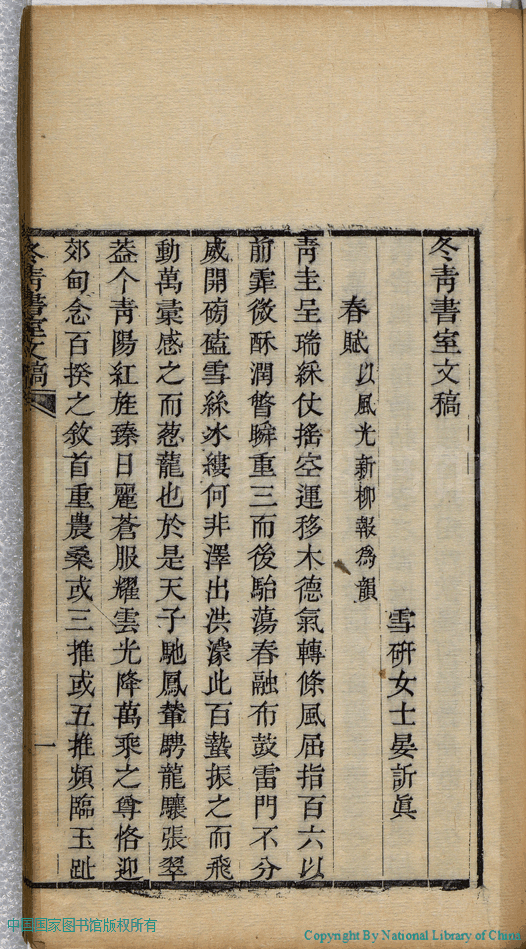 冬青書室文稿
雪研女士晏訢眞
春賦以風光新柳報爲韻
青圭呈瑞綵仗搖空運移木德氣轉條風屈指百六以
前霏微酥潤瞥瞬重三而後駘蕩春融布鼓雷門不分
威開磅磕雪絲冰縷何非澤出洪濛此百蟄振之而飛
動萬彙感之而葱蘢也於是天子馳鳳輦騁龍驤張翠
葢个青陽紅旌臻日麗蒼服耀雲光降萬乘之尊恪迎
郊甸念百揆之敘首重農桑或三推或五推頻臨玉趾
冬青書室文稿
一
中国国家图书馆版权所有
Copyright By National Library of China